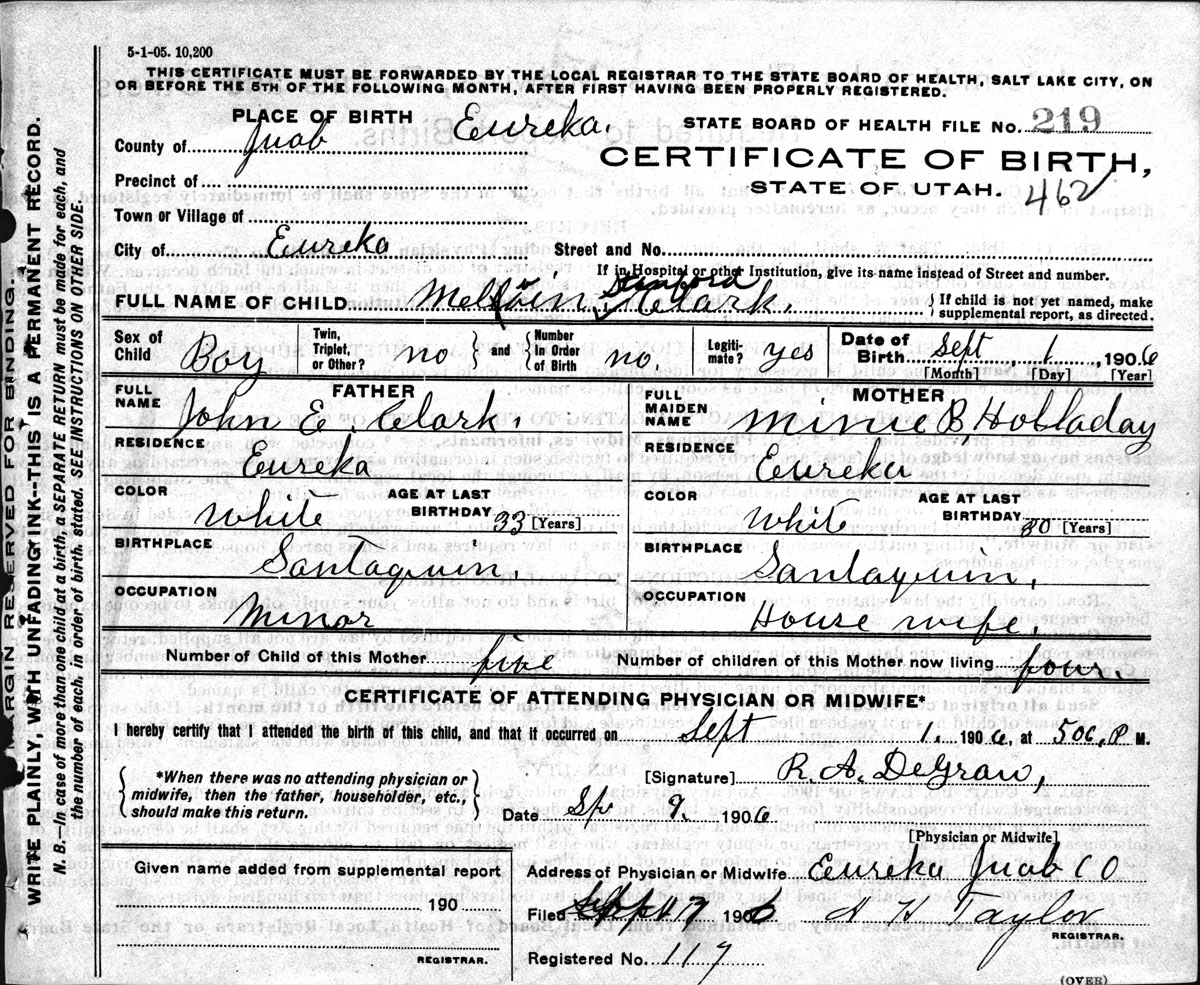 5-1-05. 10,200
THIS CERTIFICATE MUST BE FORWARDED BY THE LOCAL REGISTRAR TO THE STATE BOARD OF HEALTH, SALT LAKE CITY, ON
OR BEFORE THE 5TH OF THE FOLLOWING MONTH, AFTER FIRST HAVING BEEN PROPERLY REGISTERED.
PLACE OF BIRTH Eureka.
STATE BOARD OF HEALTH FILE No. 219
County of Juab
CERTIFICATE OF BIRTH,
STATE OF UTAH. 462
Precinct of
Town or Village of
City of Eureka Street and No.
If in Hospital or other Institution, give its name instead of Street and number.
FULL NAME OF CHILD Stanford Clark. } If child is not yet named, make
supplemental report, as directed.
Sex of Child Boy Twin, Triplet, or Other? no } and { Number In Order of Birth no Legiti-mate? yes Date of Birth Sept 1 , 1906
[Month] [Day] [Year]
FATHER
FULL NAME John E. Clark.
RESIDENCE
Eureka
COLOR White AGE AT LAST BIRTHDAY 33 [Years]
BIRTHPLACE
Santaquin.
OCCUPATION
Minor
MOTHER
FULL MAIDEN NAME Minie B Holladay
RESIDENCE
Eureka
COLOR White AGE AT LAST BIRTHDAY 30 [Years]
BIRTHPLACE
Santaquin.
OCCUPATION
House wife.
Number of Child of this Mother five Number of children of this Mother now living four.
CERTIFICATE OF ATTENDING PHYSICIAN OR MIDWIFE*
I hereby certify that I attended the birth of this child, and that it occurred on Sept 1. 1906, at 500, P M.
{ *When there was no attending physician or
midwife, then the father, householder, etc.,
should make this return. }
[Signature] R. A. DeGraw,
Date Sp 9. 1906
[Physician or Midwife]
Given name added from supplemental report
190
REGISTRAR.
Address of Physician or Midwife Eureka Juab CO
Filed 1906 Taylor
REGISTRAR.
Registered No. 117
(OVER)
MARGIN RESERVED FOR BINDING.
WRITE PLAINLY, WITH UNFADING INK--THIS IS A PERMANENT RECORD.
N. B.--In case of more than one child at a birth, a SEPARATE RETURN must be made for each, and
the number of each, in order of birth, stated. SEE INSTRUCTIONS ON OTHER SIDE.